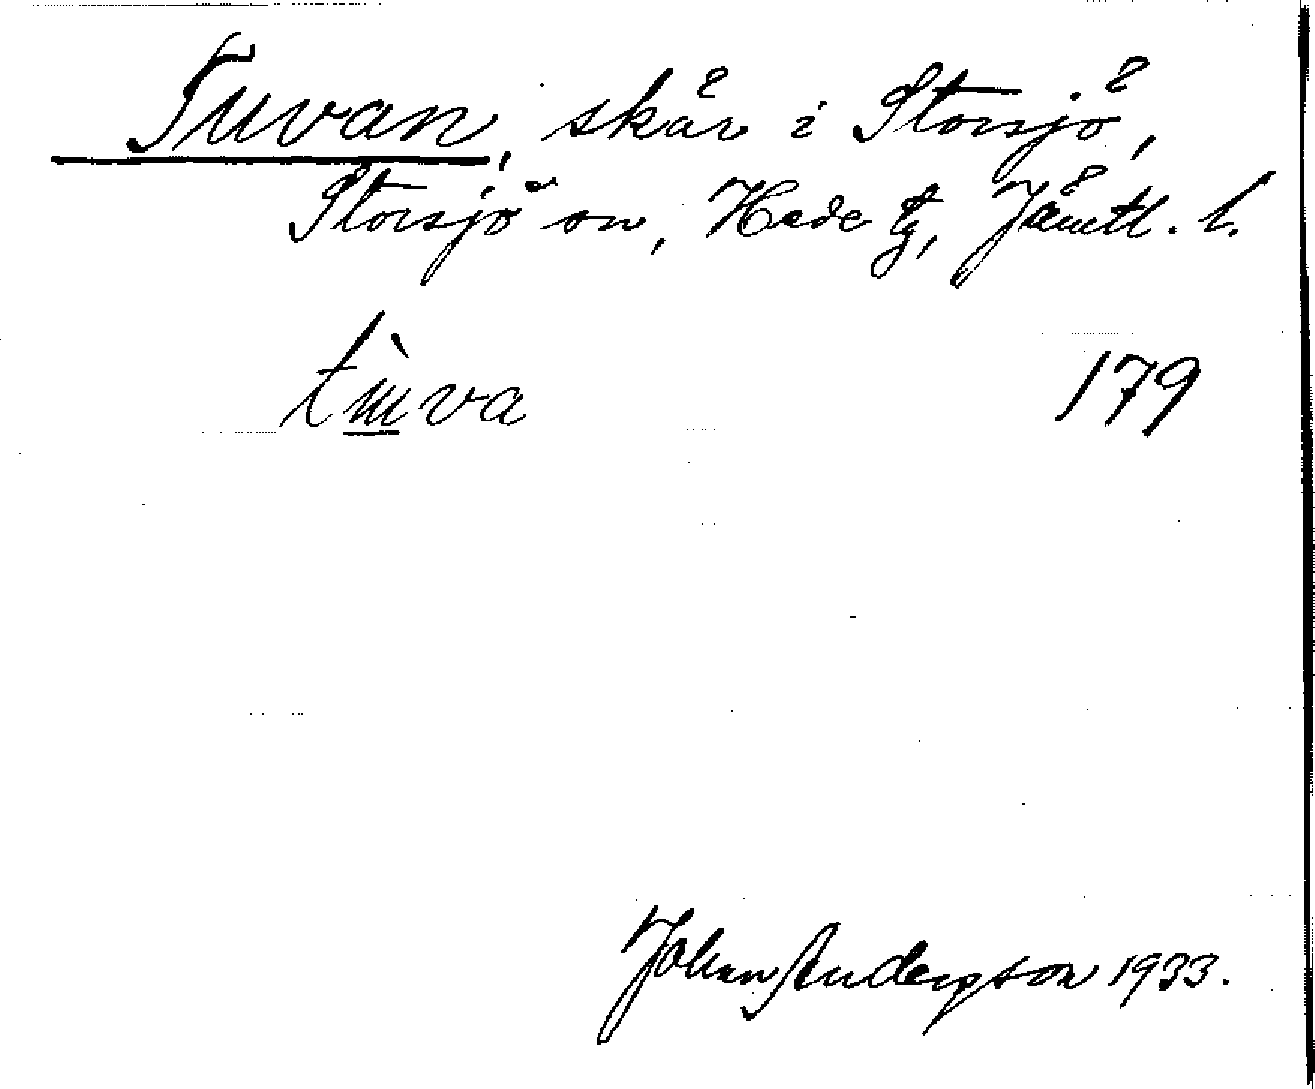 Tuvan, skär i Storsjö,
Storsjö sn, Hede tg, Jämtl. l.
tùva 179
Johan Anderson 1933.